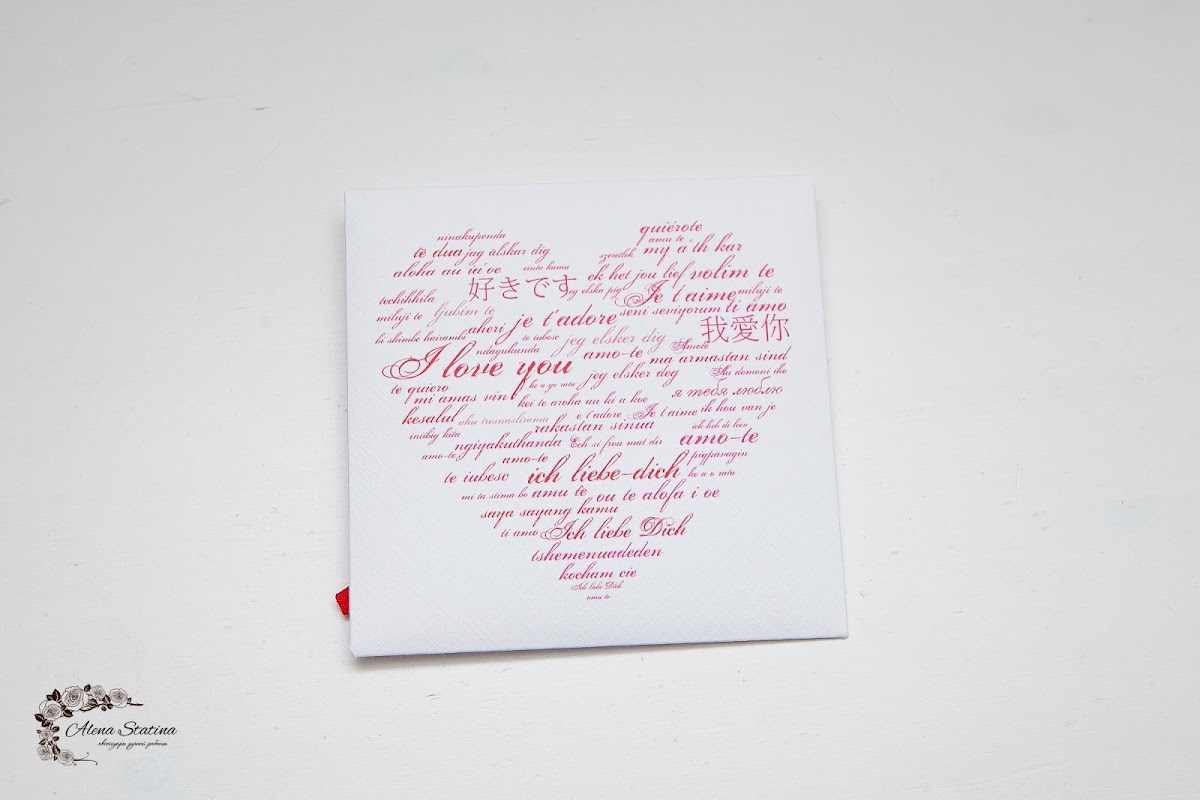 ninakupenda quiérote
amu te
të dua jag älskar dig szeretlek my a'th kar
aloha au ia'oe cinta kamu ek het jou lief volim te
techihhila 好きです jeg elska pig Je t'aime miluji te
miluji te ljubim te aheri je t'adore seni seviyorum ti amo
bi shimbe hairambi te iubesc jeg elsker dig Amote 我愛你
ndagukunda amo-te ma armastan sind
I love you jeg elsker deg Au domoni iko
te quiero ke a go rata я тебя люблю
mi amas vin kei te aroha au ki a koe
kesalul aku tresnasliramu e t'adore Je t'aime ik hou van je
inobig kita rakastan sinua ick heb di leev
ngiyakuthanda Ech si frou mat dir amo-te
amo-te amo-te pigpavagin
te iubesc ich liebe-dich ke a o rata
mi ta stima bo amu te ou te alofa i oe
saya sayang kamu
ti amo Ich liebe Dich
tshemenuadeden
kocham cie
Ich liebe Dich
amu te
Alena Statina
аксессуары ручной работы